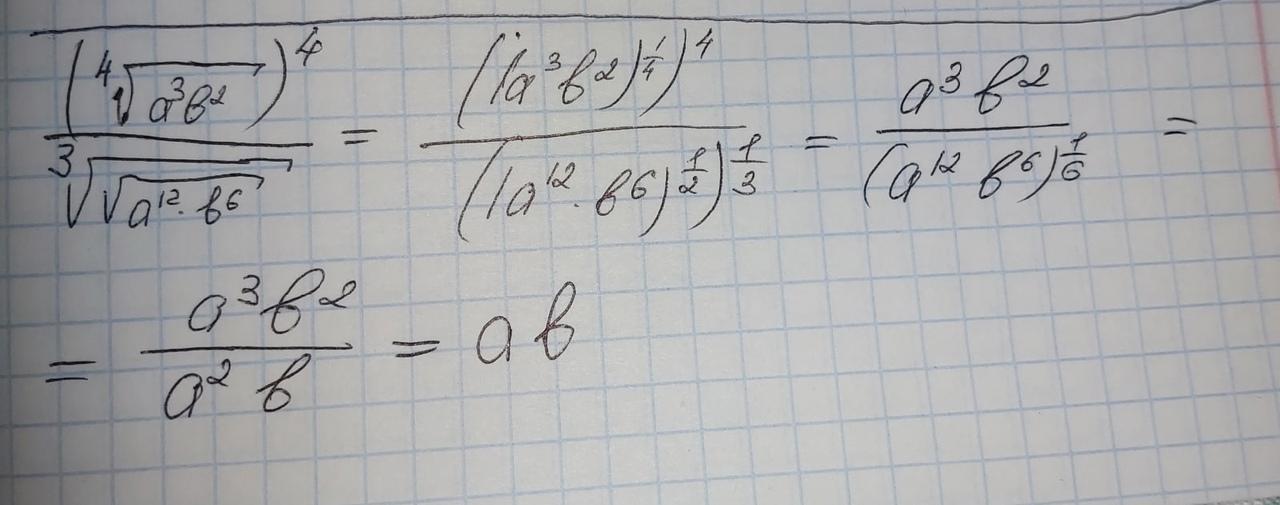 (⁴√(a³b²))⁴ / ³√(√(a¹²·b⁶)) = ((a³b²)^(1/4))⁴ / ((a¹²·b⁶)^(1/2))^(1/3) = a³b² / (a¹² b⁶)^(1/6) =
= a³b² / a² b = ab